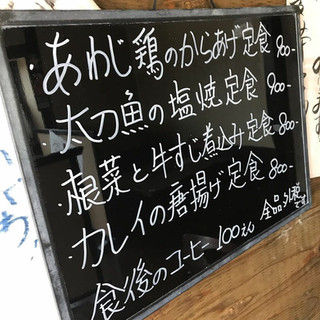 ・あわじ鶏のからあげ定食 900-
・太刀魚の塩焼定食 900-
・根菜と牛すじ煮込み定食 800-
・カレイの唐揚げ定食 800-
食後のコーヒー 100えん 全品外税です